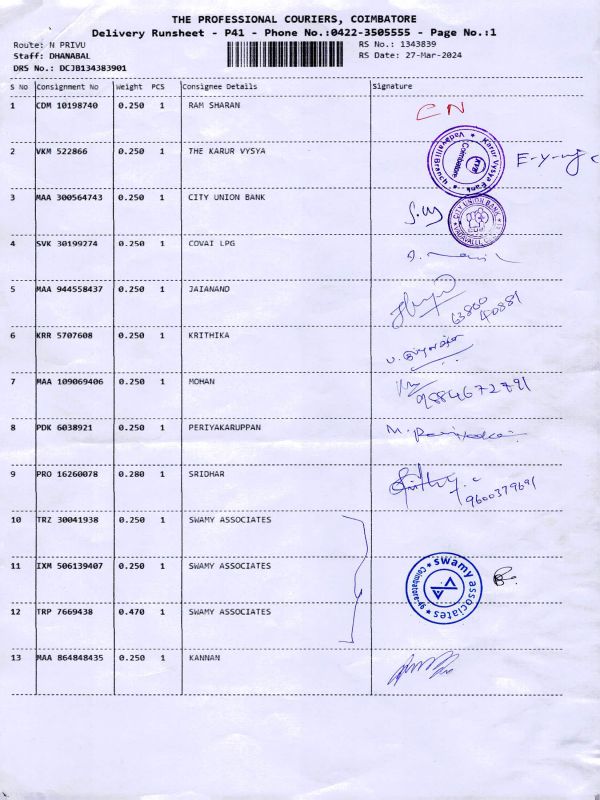 THE PROFESSIONAL COURIERS, COIMBATORE
Delivery Runsheet - P41 - Phone No.:0422-3505555 - Page No.:1
Route: N PRIVU RS No.: 1343839
Staff: DHANABAL RS Date: 27-Mar-2024
DRS No.: DCJB134383901
S No Consignment No Weight PCS Consignee Details Signature
1 CDM 10198740 0.250 1 RAM SHARAN CN
2 VKM 522866 0.250 1 THE KARUR VYSYA Karur Vysya Bank Vadavalli Branch Coimbatore
3 MAA 300564743 0.250 1 CITY UNION BANK CITY UNION BANK
4 SVK 30199274 0.250 1 COVAI LPG
5 MAA 944558437 0.250 1 JAIANAND 63800
40881
6 KRR 5707608 0.250 1 KRITHIKA
7 MAA 109069406 0.250 1 MOHAN 9884672791
8 PDK 6038921 0.250 1 PERIYAKARUPPAN
9 PRO 16260078 0.280 1 SRIDHAR 9600379691
10 TRZ 30041938 0.250 1 SWAMY ASSOCIATES
11 IXM 506139407 0.250 1 SWAMY ASSOCIATES swamy associates
12 TRP 7669438 0.470 1 SWAMY ASSOCIATES
13 MAA 864848435 0.250 1 KANNAN